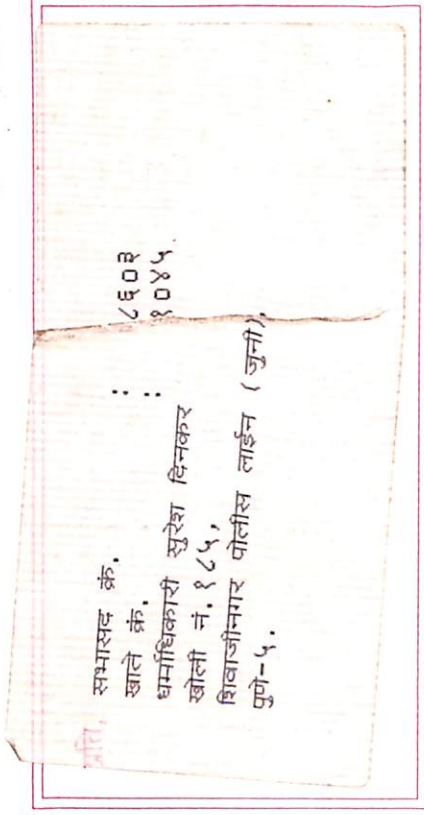 प्रति,
सभासद क्रं. : ८६०३
खाते क्रं. : १०४५
धर्माधिकारी सुरेश दिनकर
खोली नं. १८५,
शिवाजीनगर पोलीस लाईन (जुनी),
पुणे-५.